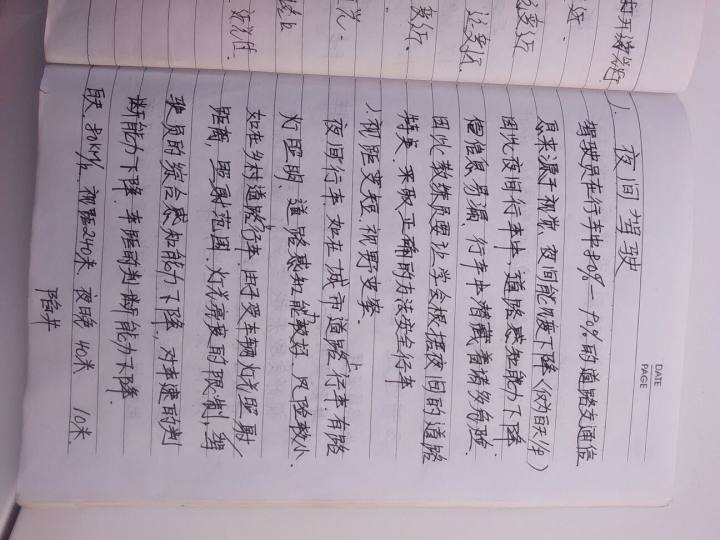 DATE
PAGE
). 夜间驾驶
驾驶员在行车中80%-90%的道路交通信
息来源于视觉,夜间能见度下降(仅为白天1/5)
因此夜间行车中,道路感知能力下降
信息易漏、行车中潜藏着诸多危险.
因此教练员要让学会根据夜间的道路
特矣 采取正确的方法安全行车
)视距变短、视野变窄.
夜间行车 如在城市道路上行车.有路
灯照明、道路感知能力较好、风险较小.
如在乡村道路上行车 由于受车辆灯光照射
距离,照射范围.灯光亮度的限制,驾
驶员的综合感知能力下降.对车速的判
断能力下降.车距的判断能力下降.
白天.80KM/h 视距240米 夜晚 40米 10米.
陷井